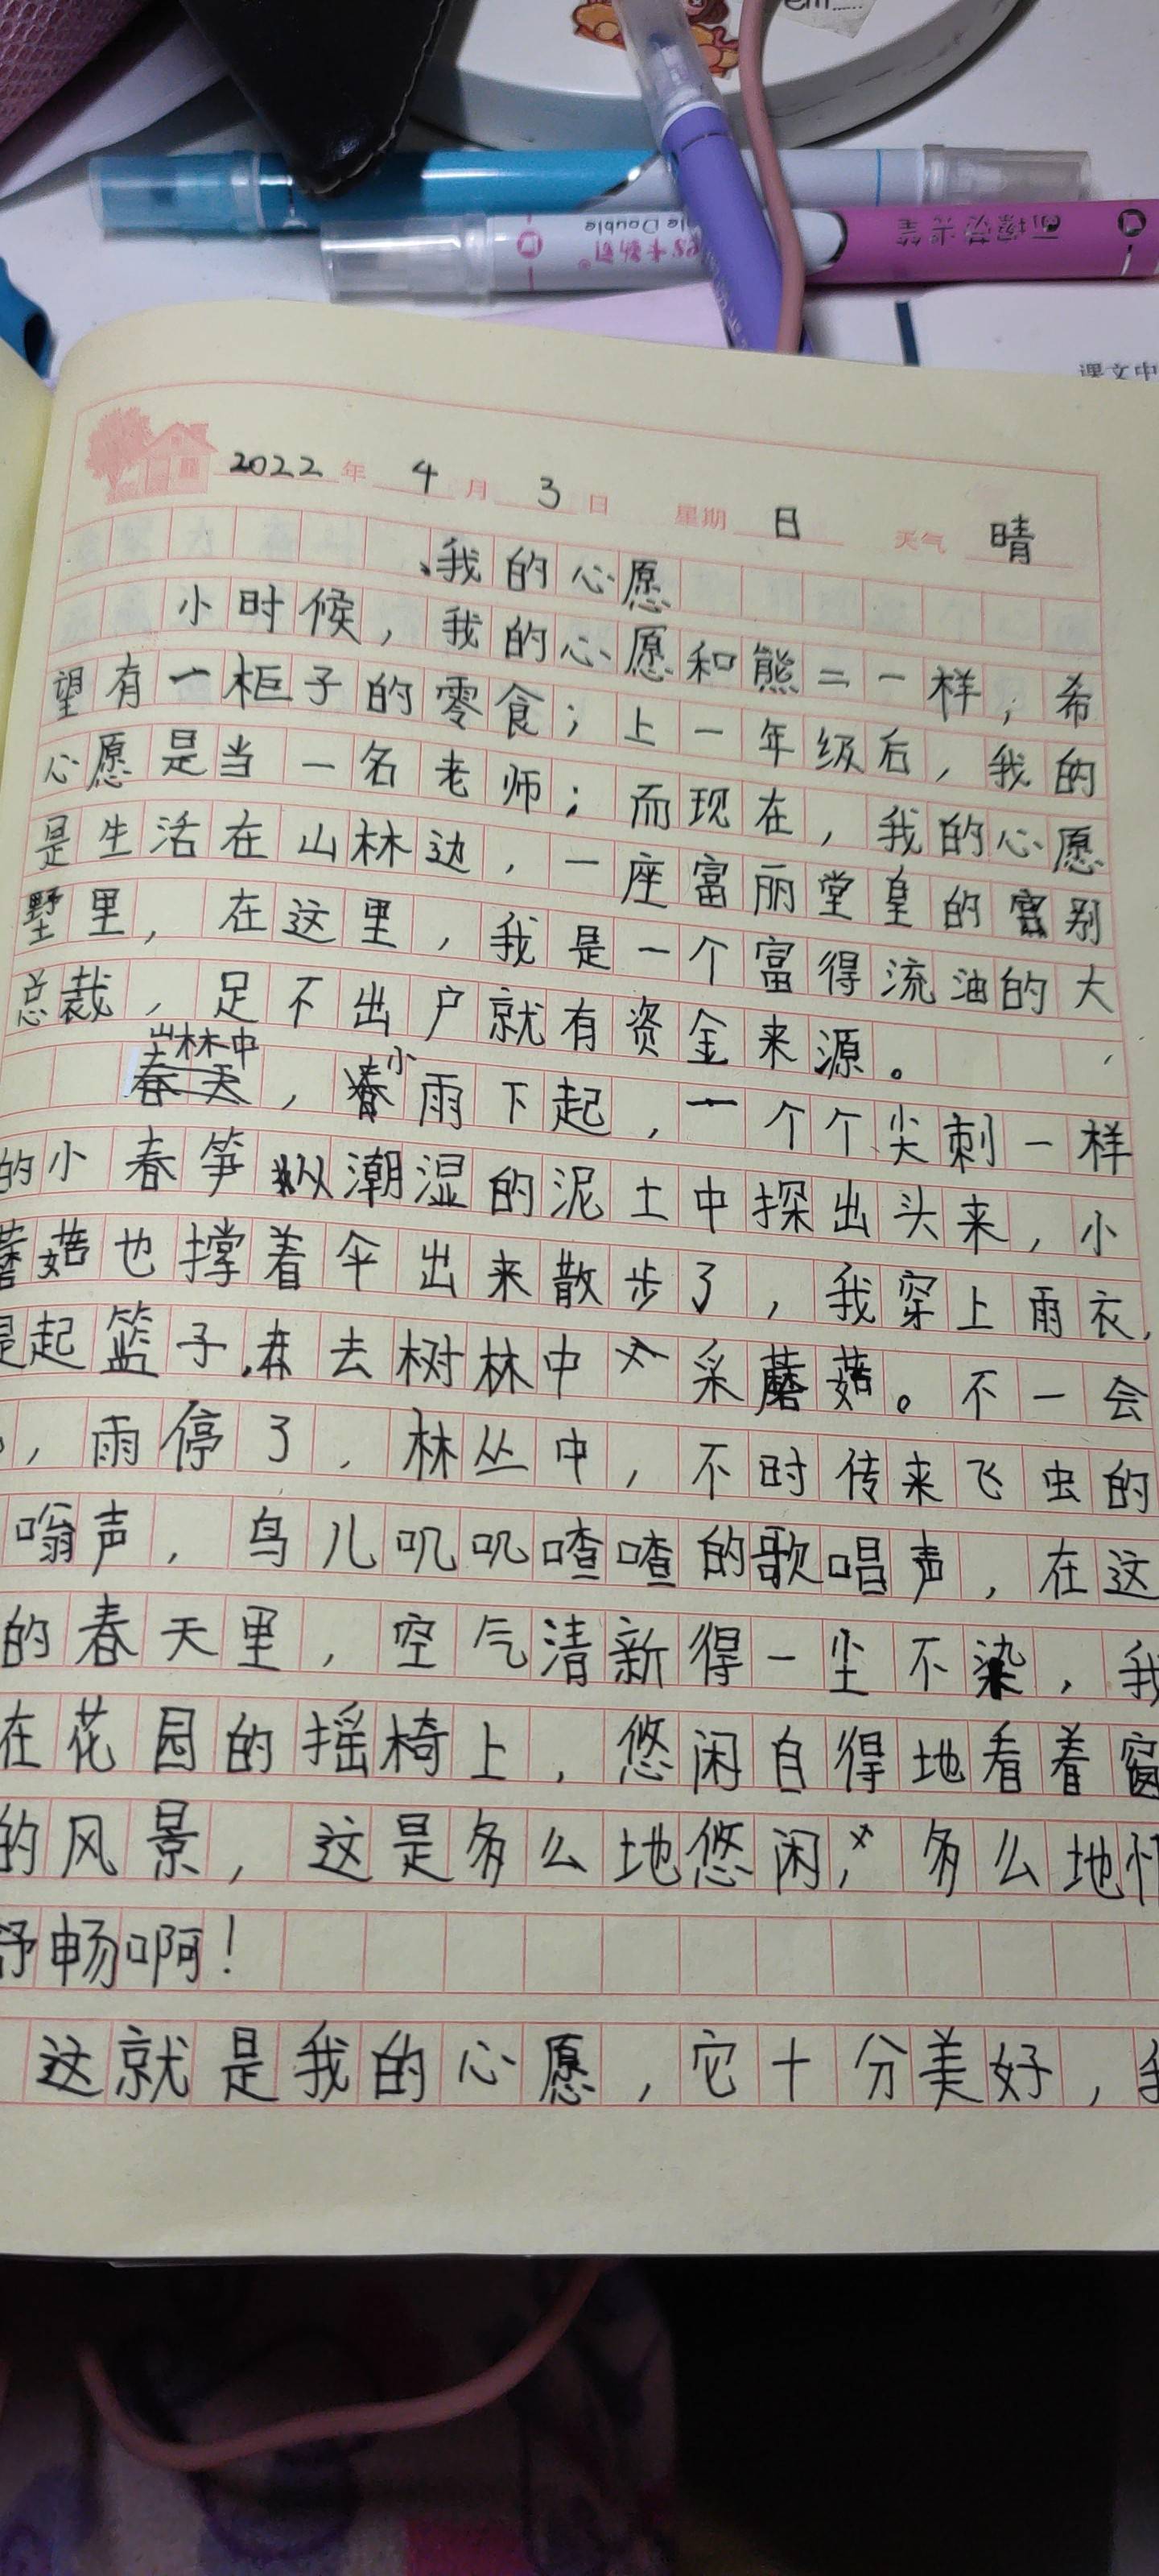 em.....
le Double
可擦荧光笔
课文中
2022年 4月 3日 星期 日 天气 晴
、我的心愿
小时候，我的心愿和熊二一样，希
望有一柜子的零食；上一年级后，我的
心愿是当一名老师；而现在，我的心愿
是生活在山林边，一座富丽堂皇的别
墅里，在这里，我是一个富得流油的大
总裁，足不出户就有资金来源。
山林中，小雨下起，一个个尖刺一样
的小春笋从潮湿的泥土中探出头来，小
蘑菇也撑着伞出来散步了，我穿上雨衣，
提起篮子，去树林中采蘑菇。不一会
，雨停了，林丛中，不时传来飞虫的
嗡声，鸟儿叽叽喳喳的歌唱声，在这
的春天里，空气清新得一尘不染，我
在花园的摇椅上，悠闲自得地看着窗
的风景，这是多么地悠闲，多么地
舒畅啊！
这就是我的心愿，它十分美好，我